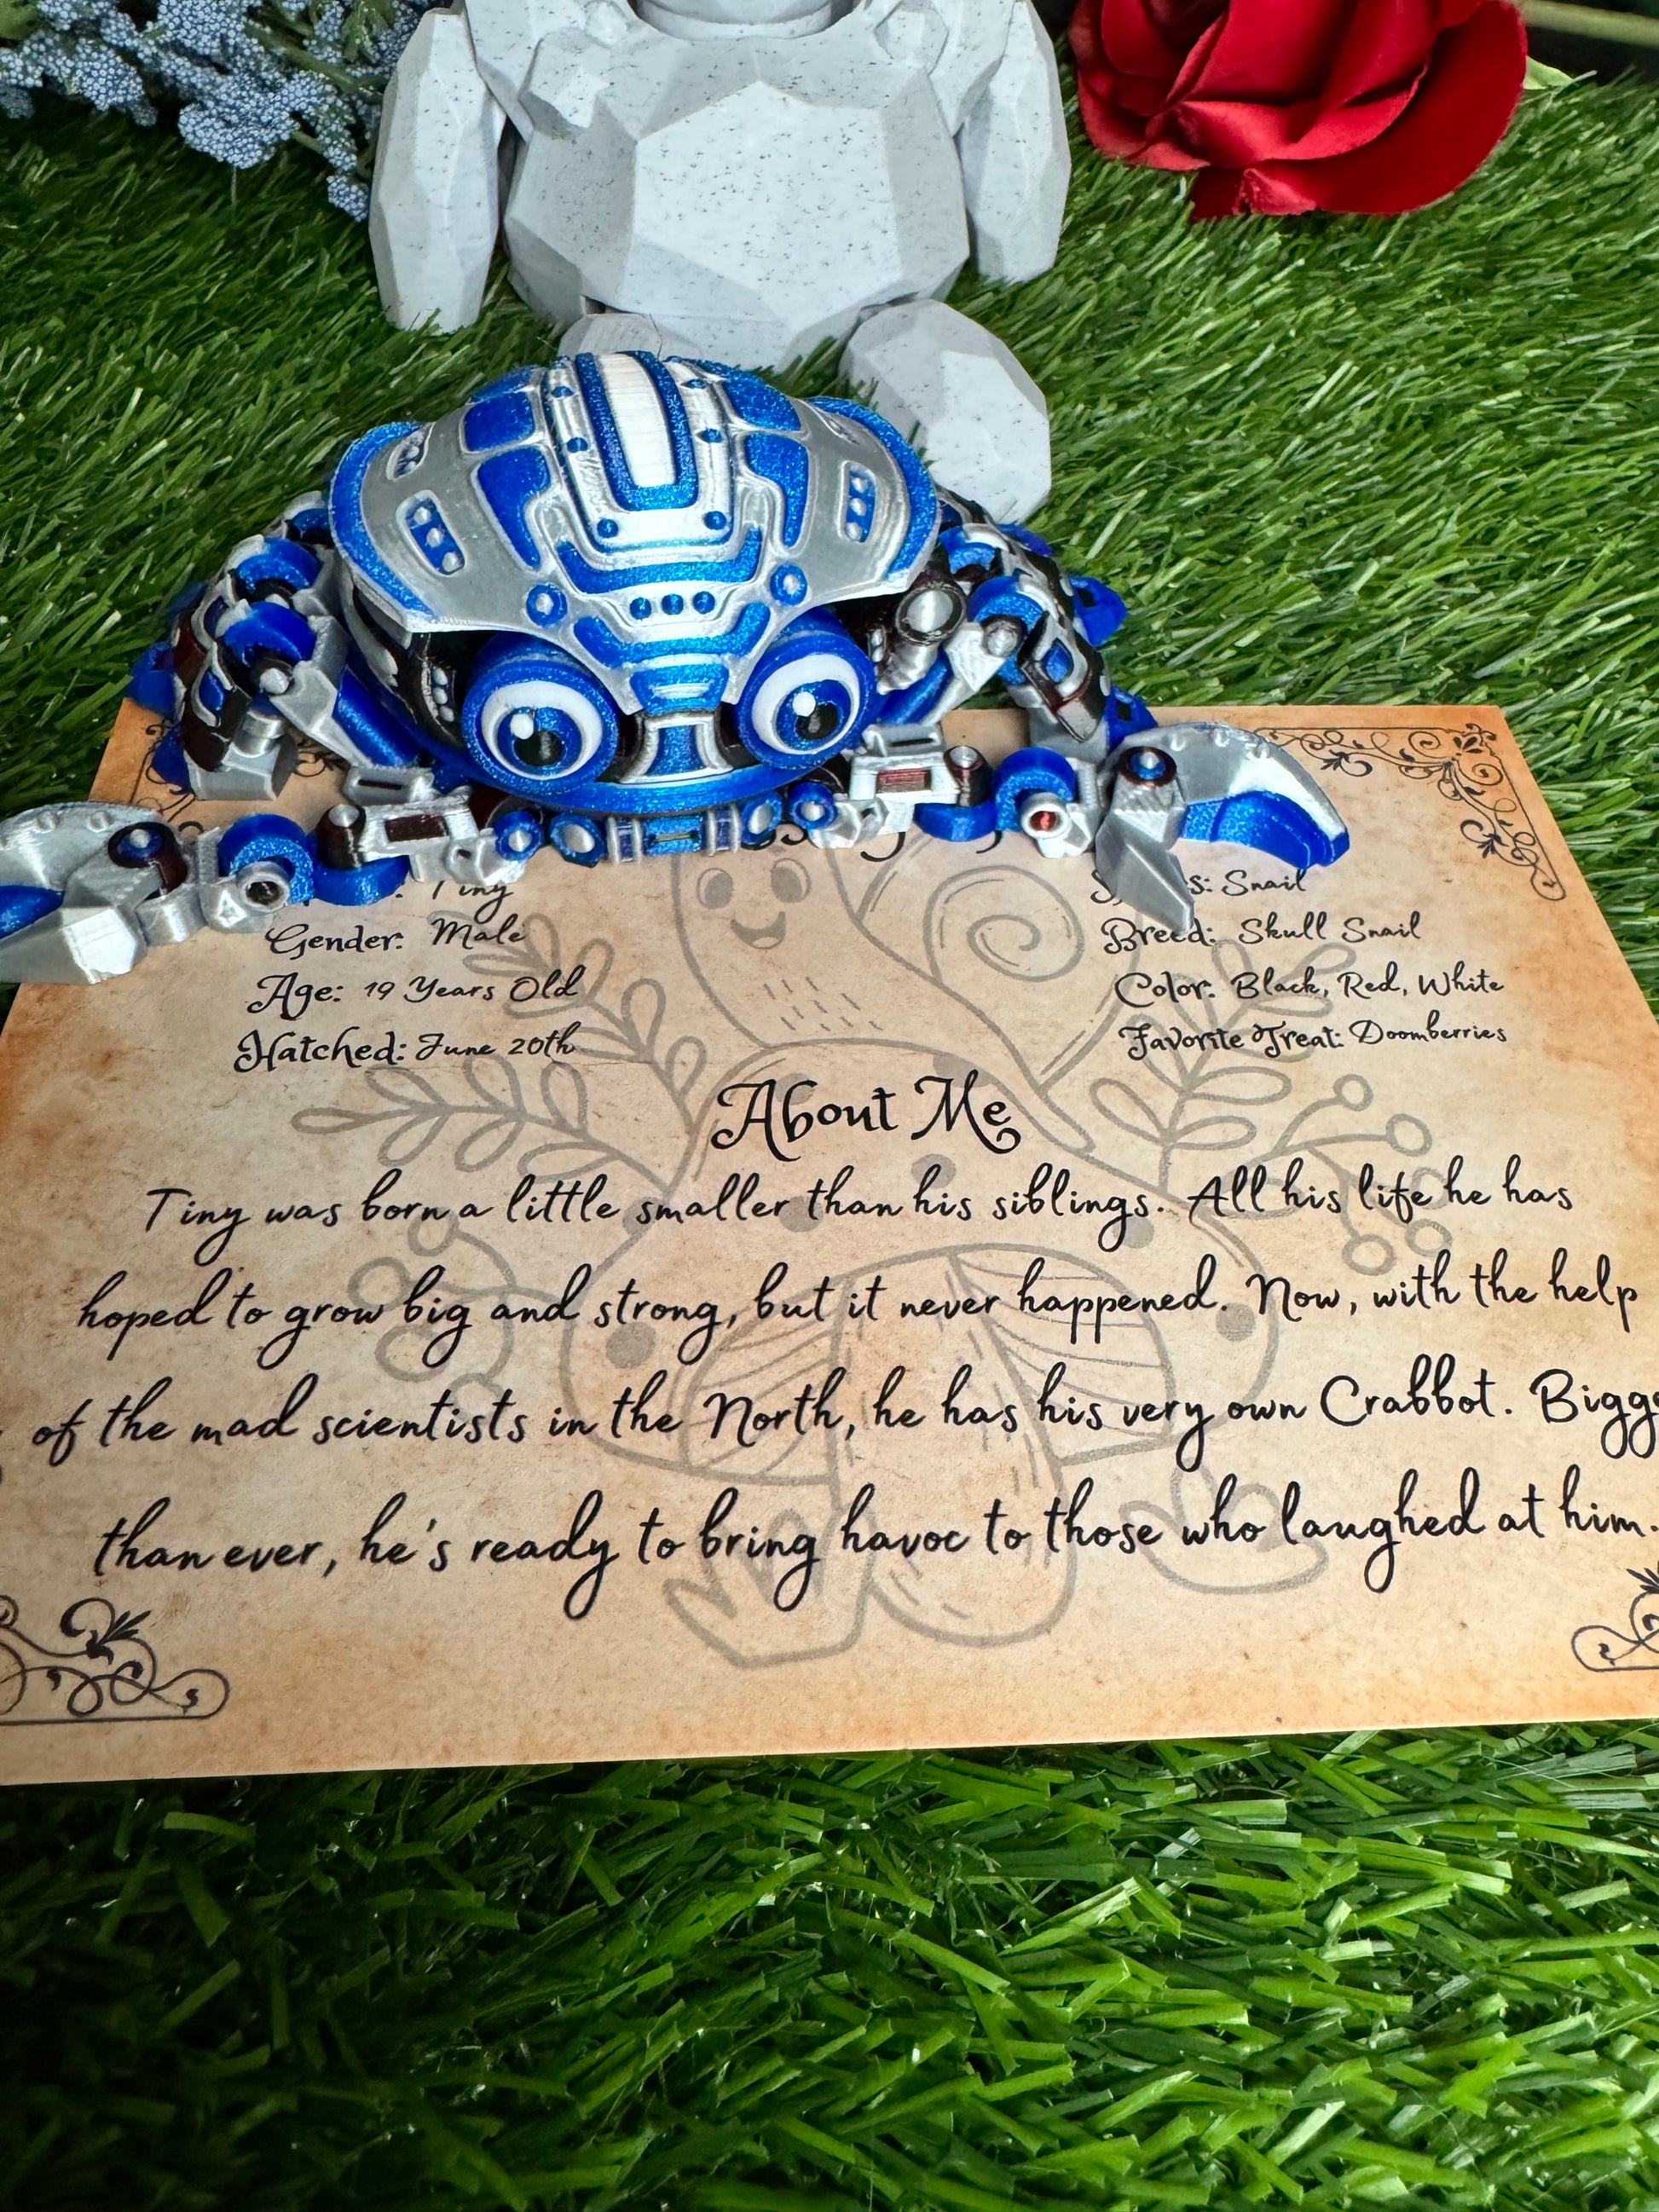 Tiny
Snail
Gender: Male
Breed: Skull Snail
Age: 19 Years Old
Color: Black, Red, White
Hatched: June 20th
Favorite Treat: Doomberries
About Me
Tiny was born a little smaller than his siblings. All his life he has
hoped to grow big and strong, but it never happened. Now, with the help
of the mad scientists in the North, he has his very own Crabbot.
than ever, he's ready to bring havoc to those who laughed at him.